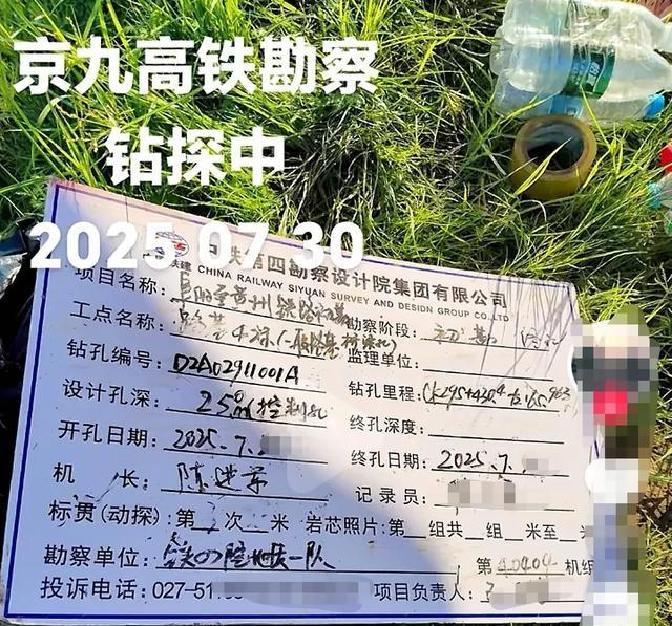 京九高铁勘察
钻探中
2025 07 30
中铁第四勘察设计院集团有限公司
CHINA RAILWAY SIYUAN SURVEY AND DESIGN GROUP CO.,LTD
项目名称: 阜阳至黄州铁路初勘
工点名称: 勘察阶段: 初勘
钻孔编号: DZA02911001A 监理单位:
设计孔深: 25m控制孔 钻孔里程: CK295+430.4
开孔日期: 2025.7. 终孔深度:
机 长: 陈进军 终孔日期: 2025.7.
记录员:
标贯(动探): 第 次 米 岩芯照片: 第 组共 组 米至 米
勘察单位: 铁四院地铁一队 第 40404 机组
投诉电话: 027-51 项目负责人: